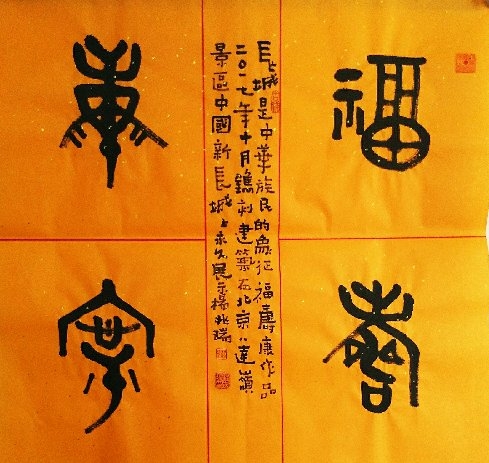 福壽
康寧
長城是中華族民的象征福壽康作品
二〇一七年十月鐫刻建築在北京八達嶺
景區中國新長城上永久展示楊兆瑞